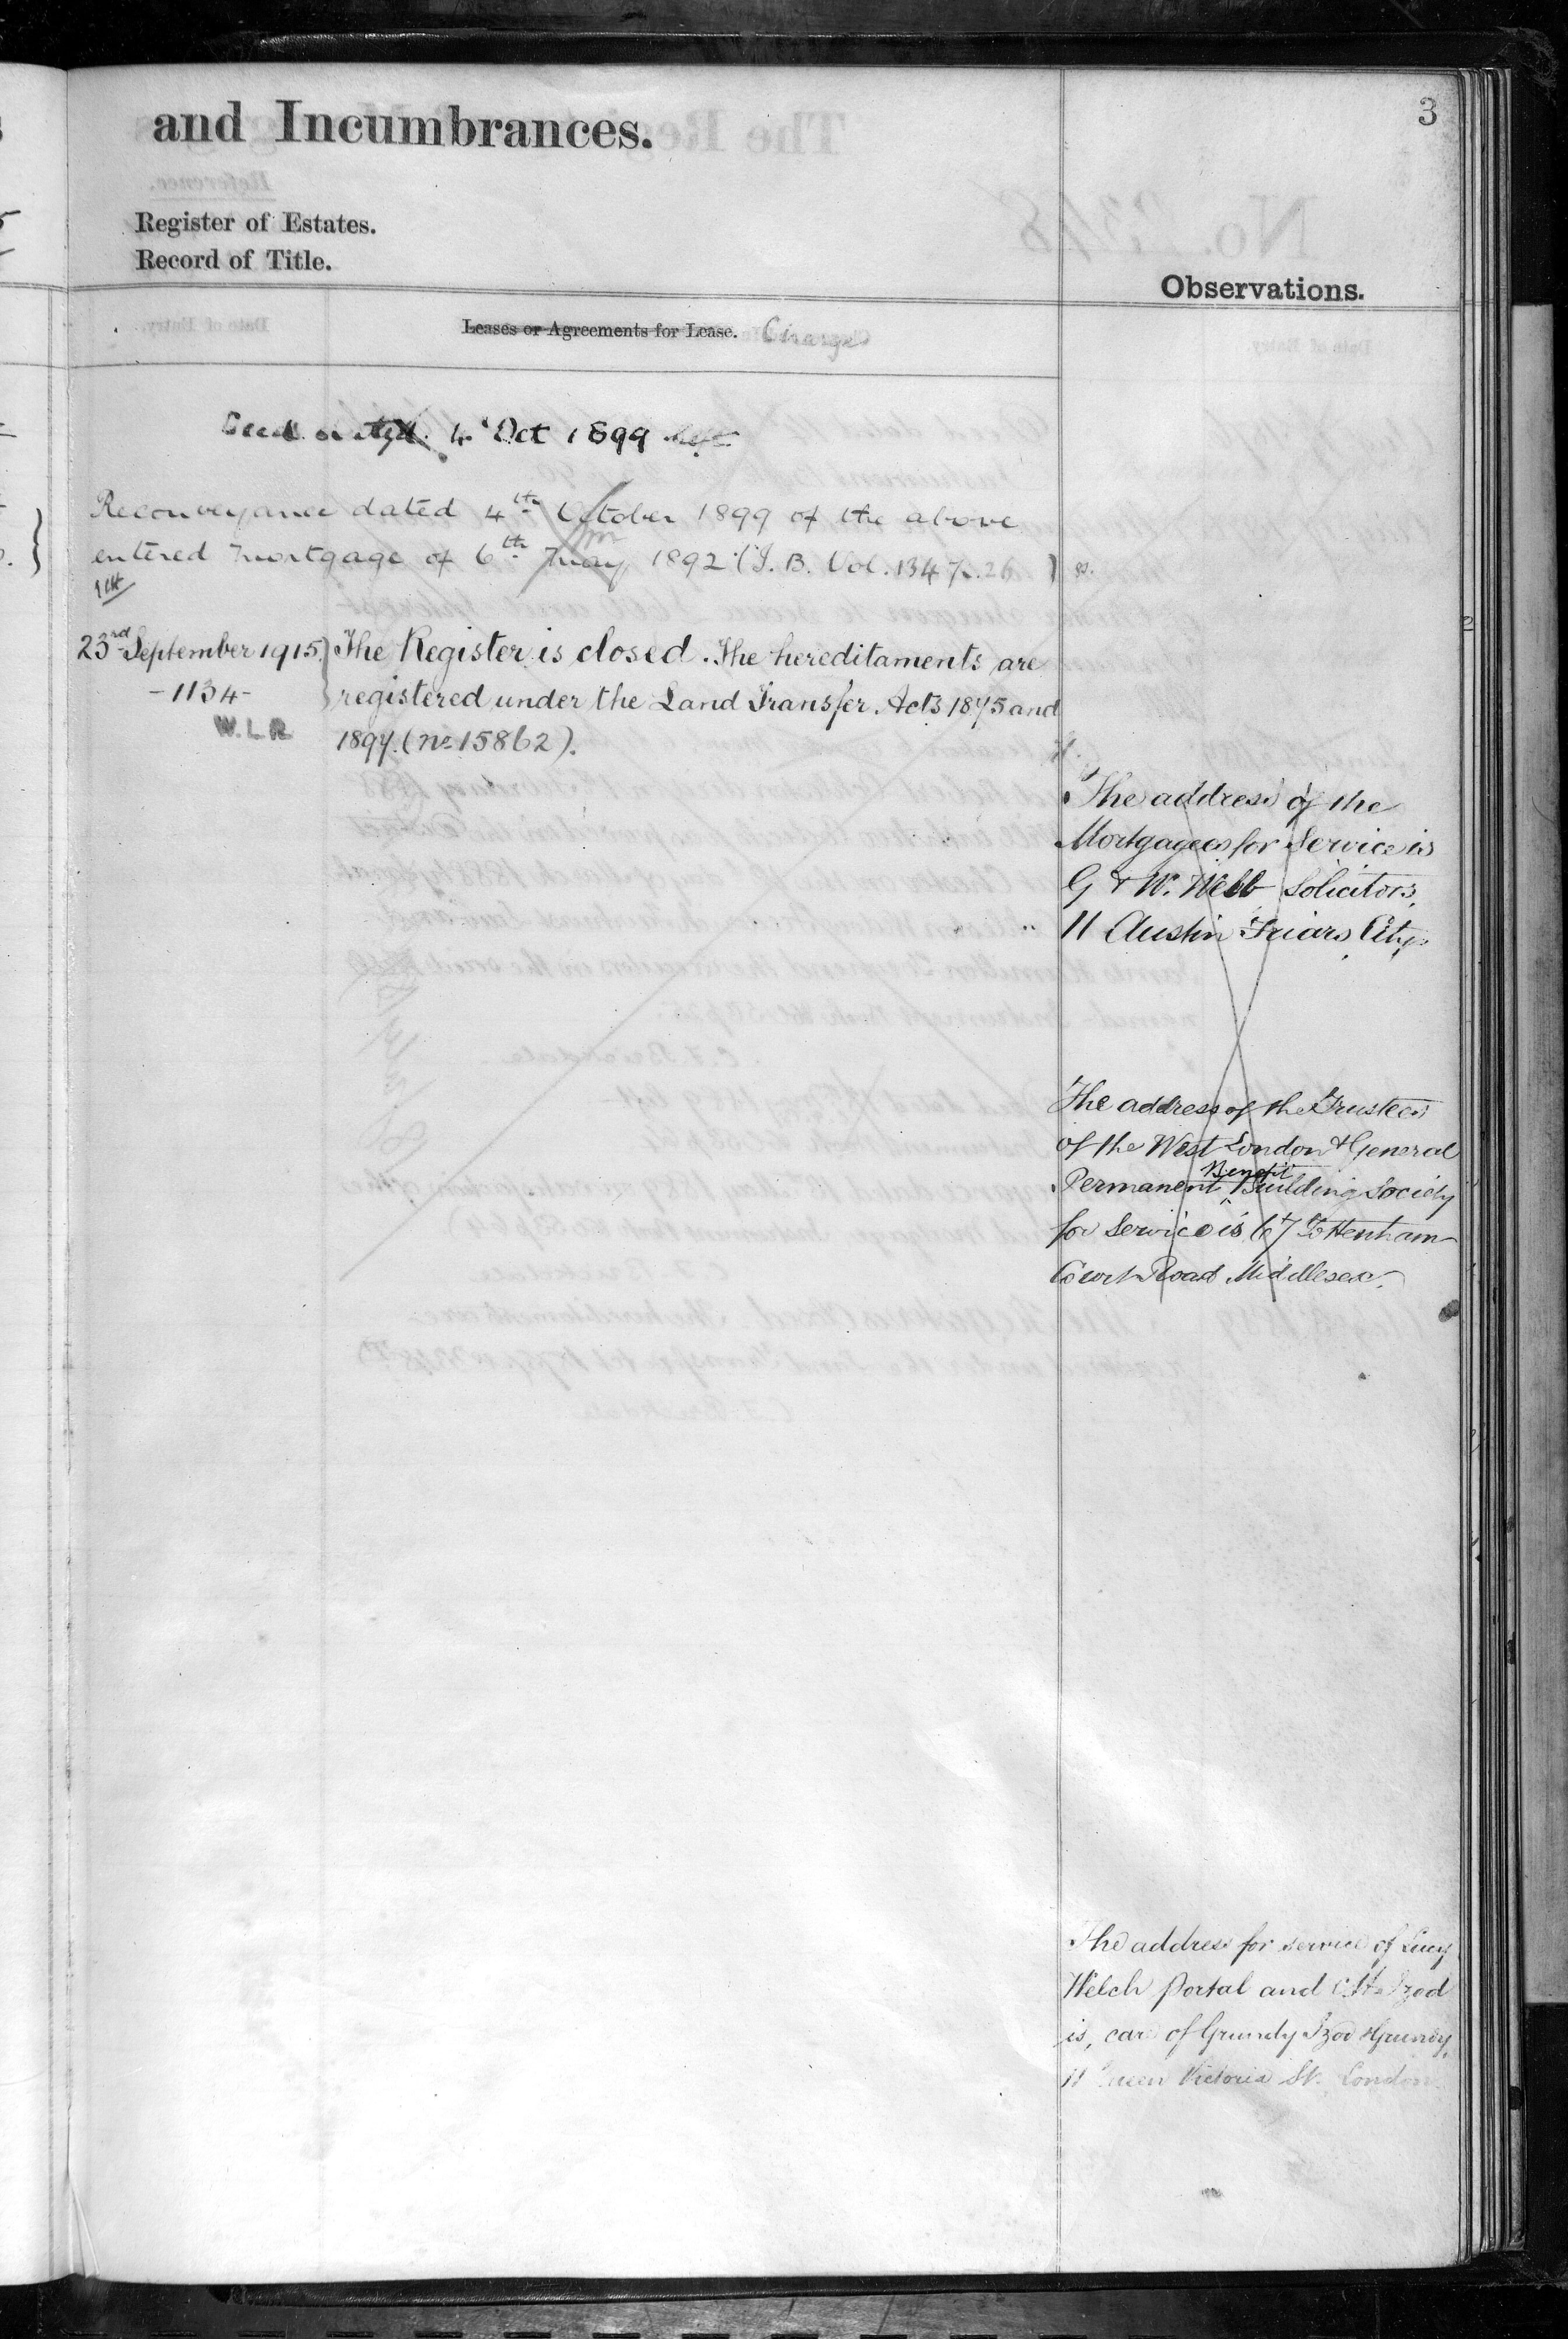 3
and Incumbrances.
Register of Estates.
Record of Title.
Observations.
Leases or Agreements for Lease. Charges
Deed dated 4th Oct 1899 left
Reconveyance dated 4th October 1899 of the above
entered mortgage of 6th May 1892 (I. B. Vol. 134 p. 26)
23rd September 1915. } The Register is closed. The hereditaments are
-1134- registered under the Land Transfer Acts 1875 and
W.L.R 1897. (no 15862).
The address of the
Mortgagees for Service is
G & W. Webb Solicitors,
11 Austin Friars City
The address of the Trustees
of the West London & General
Permanent Benefit Building Society
for Service is 67 Tottenham
Court Road Middlesex.
The address for service of Lucy
Welch Portal and Izod
is, care of Grundy Izod & Grundy,
Queen Victoria St. London